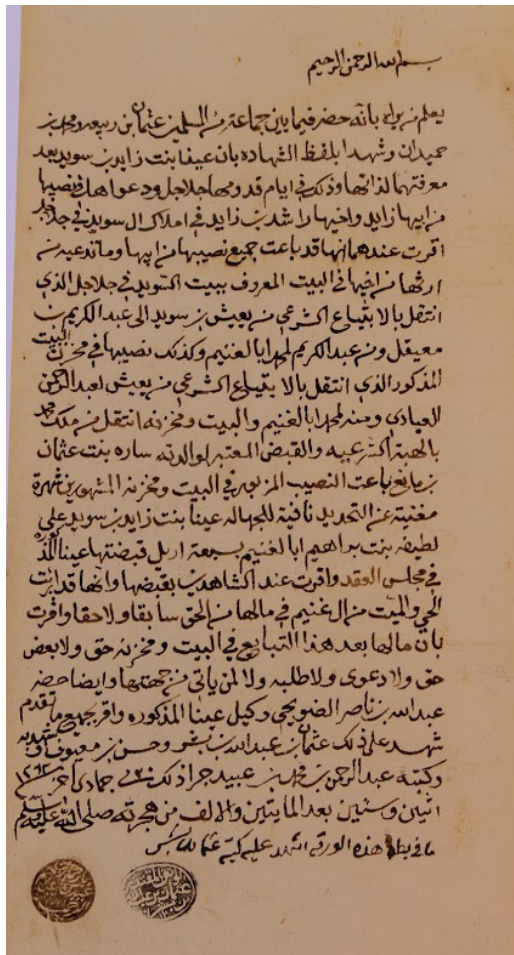 بسم الله الرحمن الرحيم
يعلم من يراه بانه حضر فيما بين جماعة من المسلمين عثمان بن ربيعه ومحمد بن
حميدان وشهدا بلفظ الشهاده بان عينا بنت زايد بن سويد بعد
معرفتهما لذاتها وذلك في ايام قدومها جلاجل ودعواهل في نصيبها
من ابيها زايد واخيها راشد بن زايد في املاك ال سويد في جلاجل
اقرت عندهما انها قد باعت جميع نصيبها من ابيها وما تدعيه من
ارثها من اخيها في البيت المعروف ببيت السويد في جلاجل الذي
انتقل بالابتياع الشرعي من يعيش بن سويد الى عبد الكريم بن
معيقل ومن عبد الكريم لمحمد ابا الغنيم وكذلك نصيبها في مخزن البيت
المذكور الذي انتقل بالابتياع الشرعي من يعيش لعبد الرحمن
العبادي ومنه لمحمد ابا الغنيم والبيت ومخزنه انتقل من ملك محمد
بالهبة الشرعيه والقبض المعتبر لوالدته ساره بنت عثمان
بن مانع باعت النصيب المزبور في البيت ومخزنه المشهورين شهرة
مغنية عن التحديد نافية للجهاله عينا بنت زايد بن سويد على
لطيفه بنت براهيم ابا الغنيم بسبعة اريل قبضتها عينا المذكوره
في مجلس العقد واقرت عند الشاهدين بقبضها وانها قد ابرت
الحي والميت من ال غنيم في مالها من الحق سابقا ولاحقا واقرت
بان مالها بعد هذا التبايع في البيت ومخزنه حق ولا بعض
حق ولا دعوى ولا طلبه ولا لمن ياتي من جهتها وايضا حضر
عبد الله بن ناصر الضويحي وكيل عينا المذكوره واقر بجميع ما تقدم
شهد على ذلك عثمان بن عبد الله بن بشر وحسن بن معيوف وشهد به
وكتبه عبد الرحمن بن محمد بن عبيد جرا ذلك جمادى اخر ١٢٦٢
اثنين وستين بعد المايتين والالف من هجرته صلى الله عليه وسلم
ما في بطن هذه الورقه اشهد عليه كتبه عثمان بن بشر